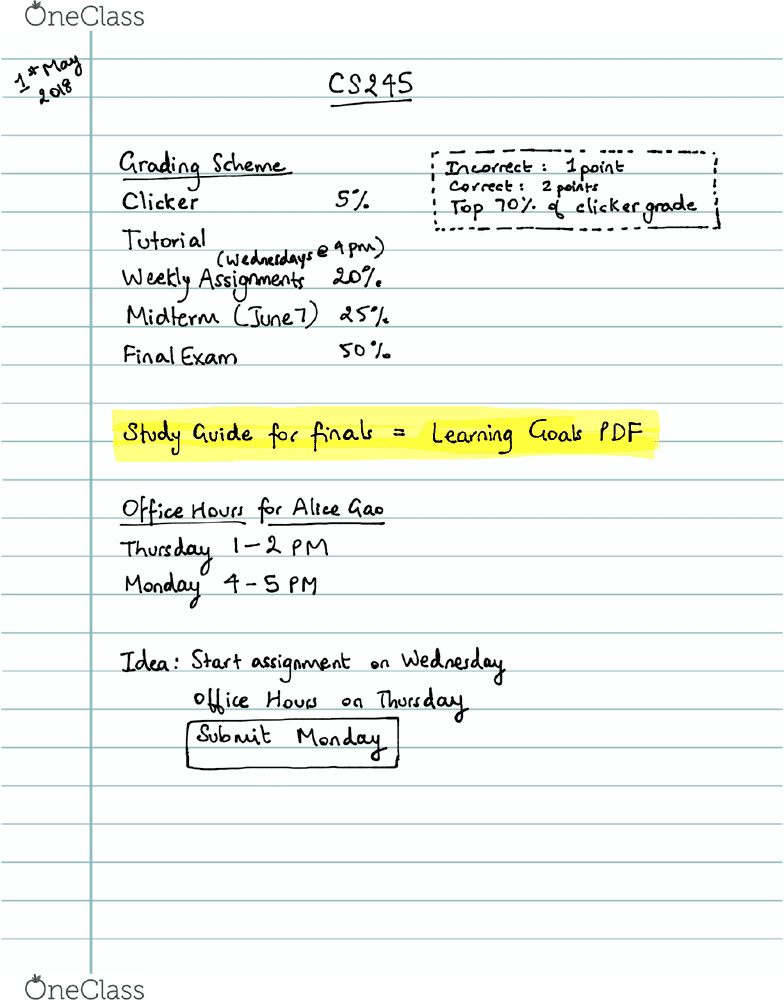 OneClass
1st May
2018
CS245
Grading Scheme
Clicker 5%
Incorrect : 1 point
Correct : 2 points
Top 70% of clicker grade
Tutorial
(Wednesdays @ 9 pm)
Weekly Assignments 20%
Midterm (June 7) 25%
Final Exam 50%
Study Guide for finals = Learning Goals PDF
Office Hours for Alice Gao
Thursday 1-2 PM
Monday 4-5 PM
Idea: Start assignment on Wednesday
Office Hours on Thursday
Submit Monday
OneClass